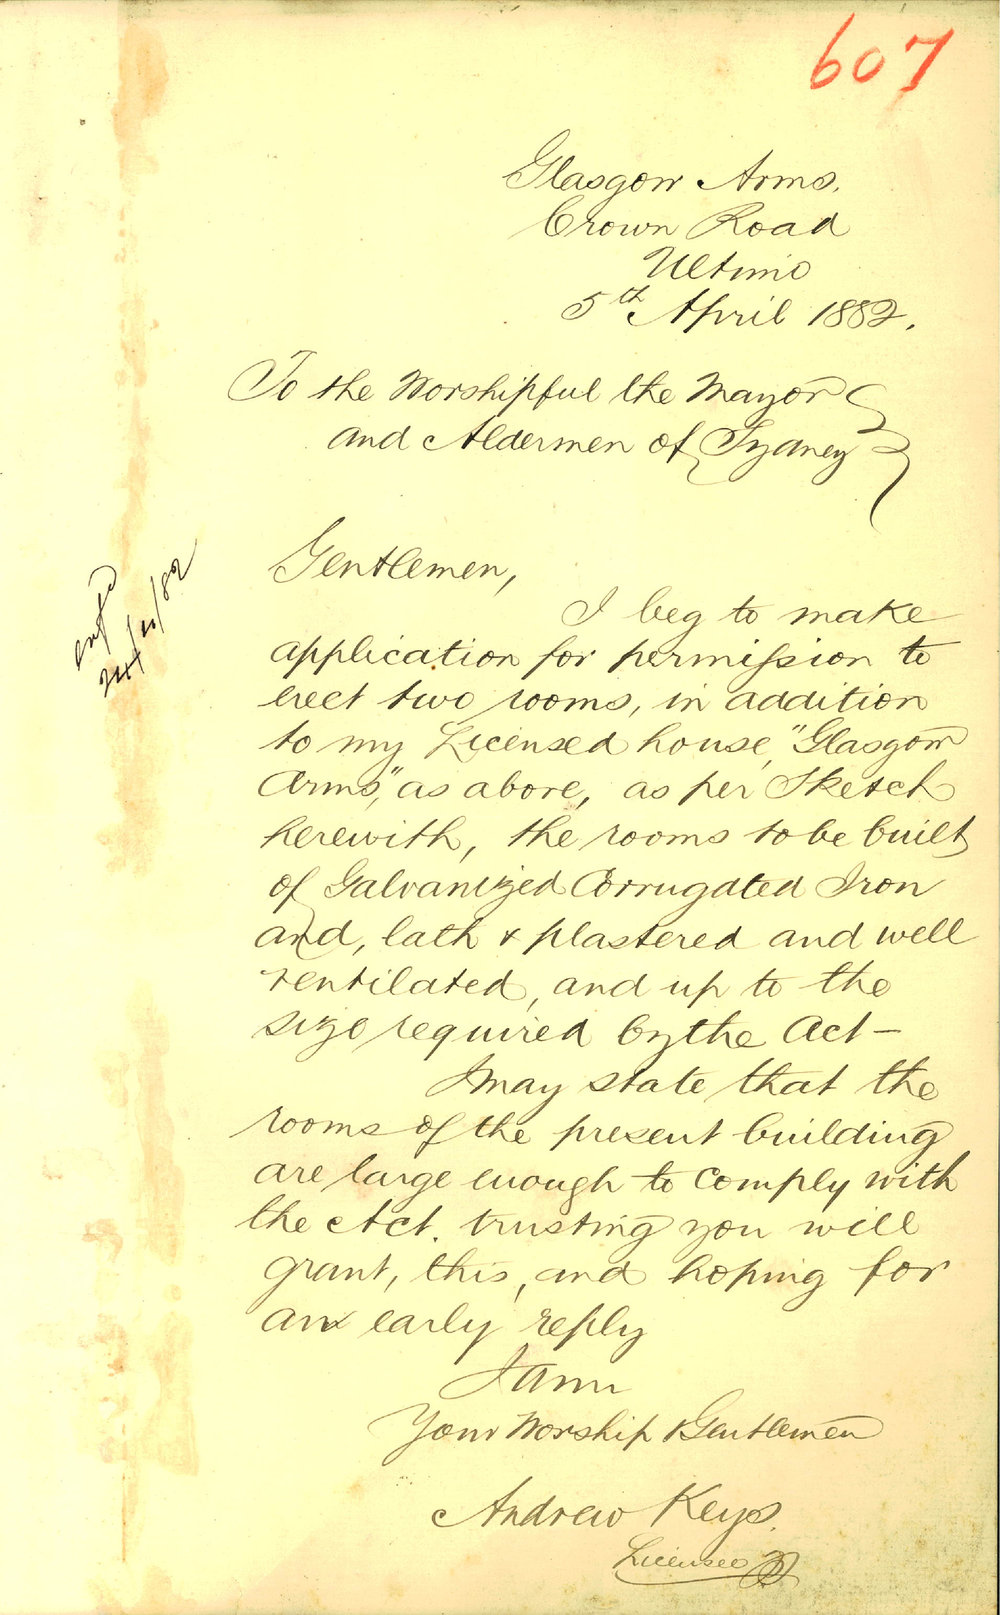 607
Glasgow Arms.
Crown Road
Ultimo
5th April 1882.
To the Worshipful the Mayor
and Aldermen of Sydney
Gentlemen,
I beg to make
application for permission to
erect two rooms, in addition
to my Licensed house, "Glasgow
Arms," as above, as per Sketch
herewith, the rooms to be built
of Galvanized Corrugated Iron
and, lath & plastered and well
ventilated, and up to the
size required by the Act—
I may state that the
rooms of the present building
are large enough to comply with
the Act. trusting you will
grant, this, and hoping for
an early reply
I am
Your Worship & Gentlemen
Andrew Keys.
Licensee